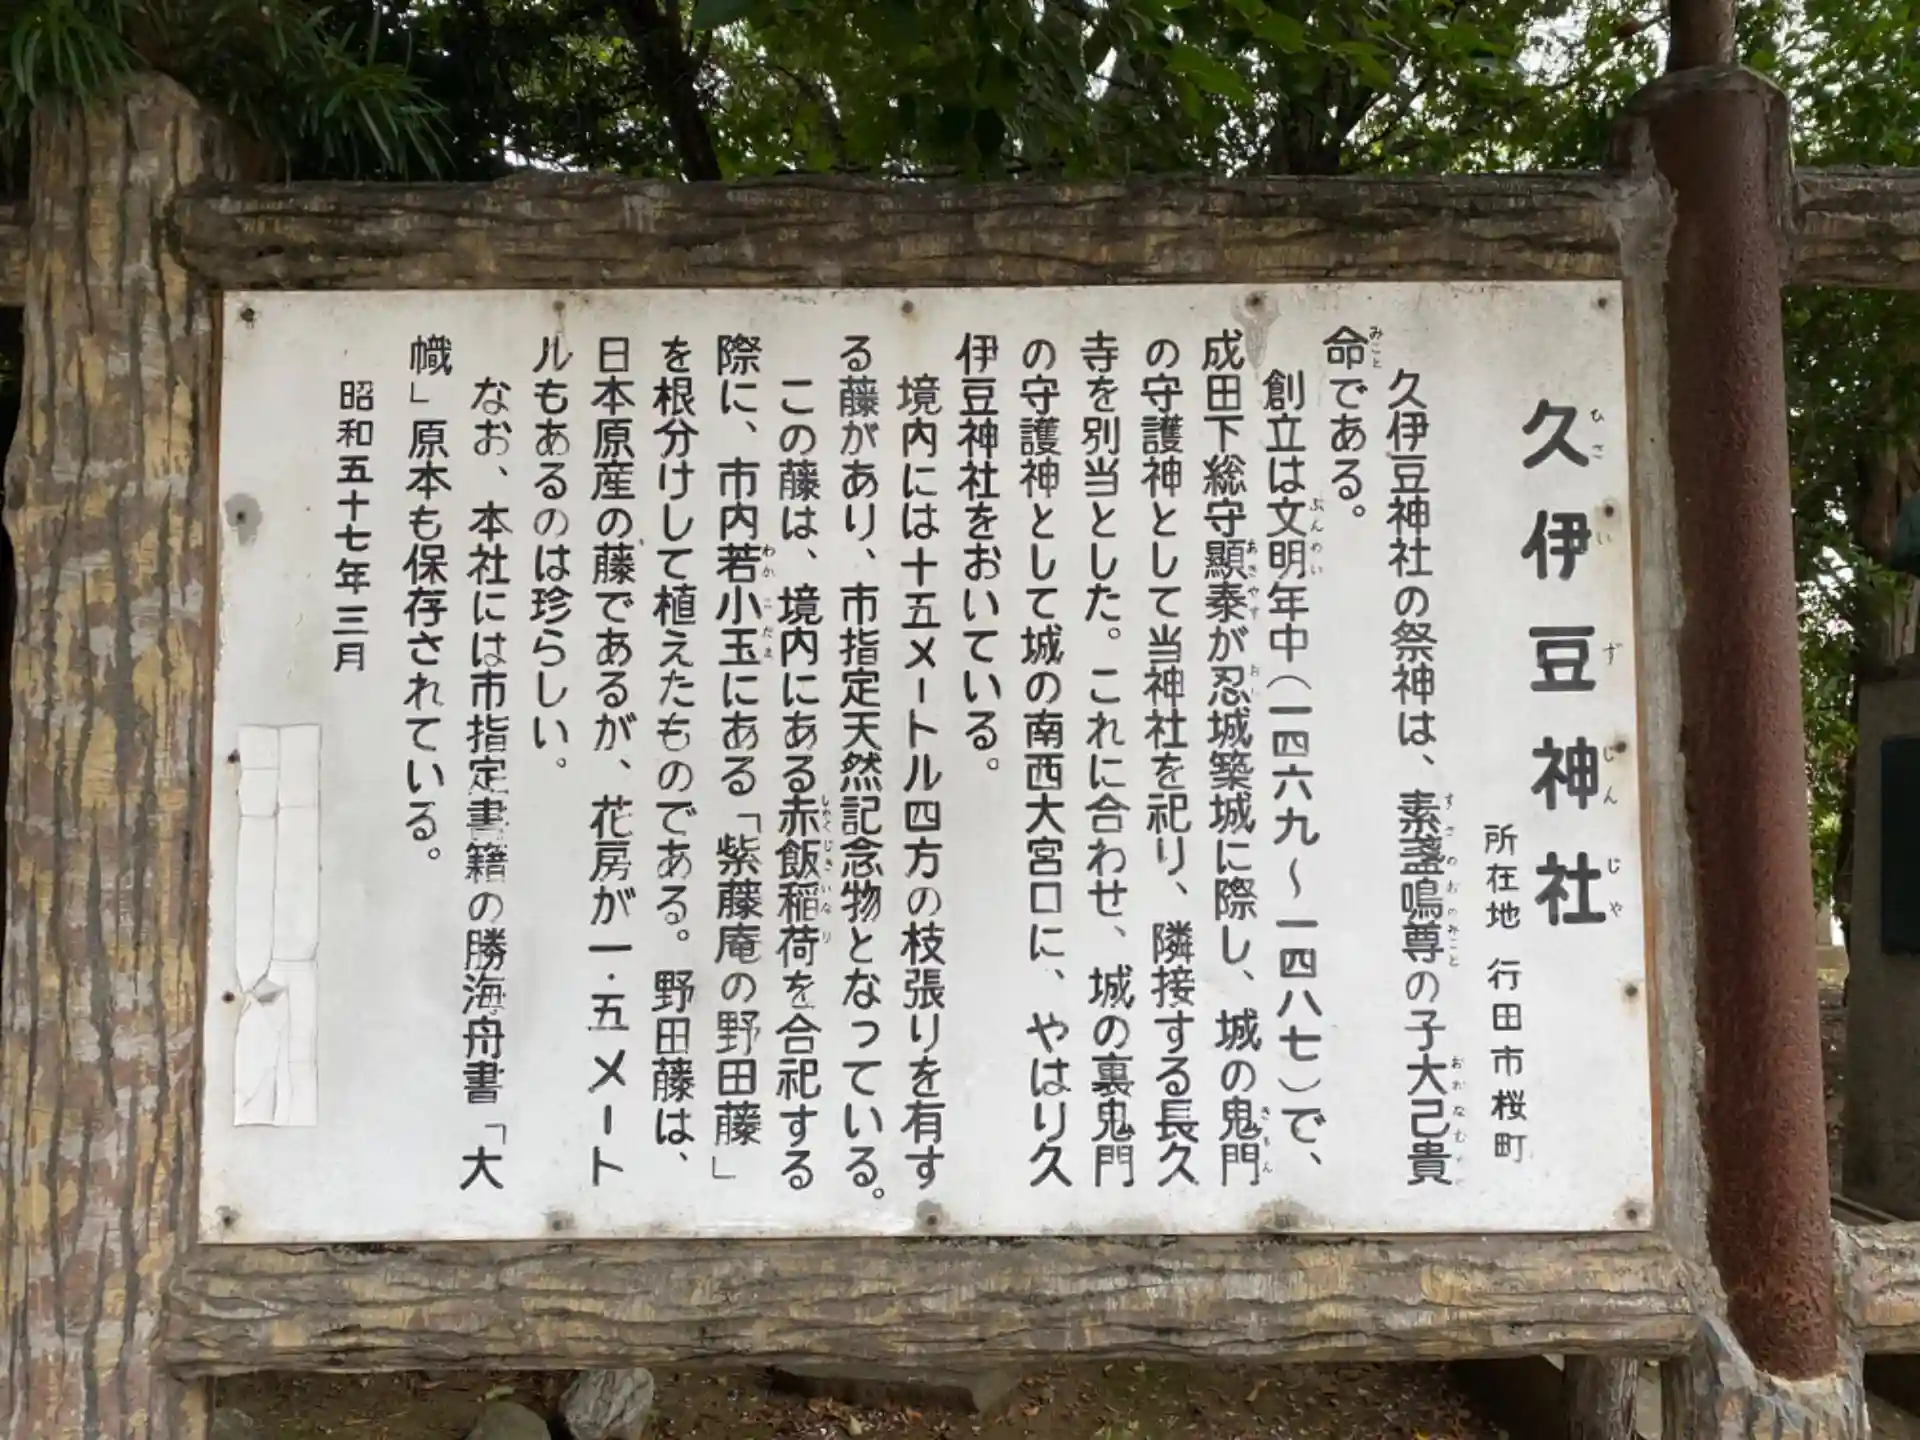 久伊豆神社
所在地 行田市桜町
久伊豆神社の祭神は、素盞鳴尊の子大己貴
命である。
創立は文明年中(一四六九~一四八七)で、
成田下総守顯泰が忍城築城に際し、城の鬼門
の守護神として当神社を祀り、隣接する長久
寺を別当とした。これに合わせ、城の裏鬼門
の守護神として城の南西大宮口に、やはり久
伊豆神社をおいている。
境内には十五メートル四方の枝張りを有す
る藤があり、市指定天然記念物となっている。
この藤は、境内にある赤飯稲荷を合祀する
際に、市内若小玉にある「紫藤庵の野田藤」
を根分けして植えたものである。野田藤は、
日本原産の藤であるが、花房が一・五メート
ルもあるのは珍らしい。
なお、本社には市指定書籍の勝海舟書「大
幟」原本も保存されている。
昭和五十七年三月